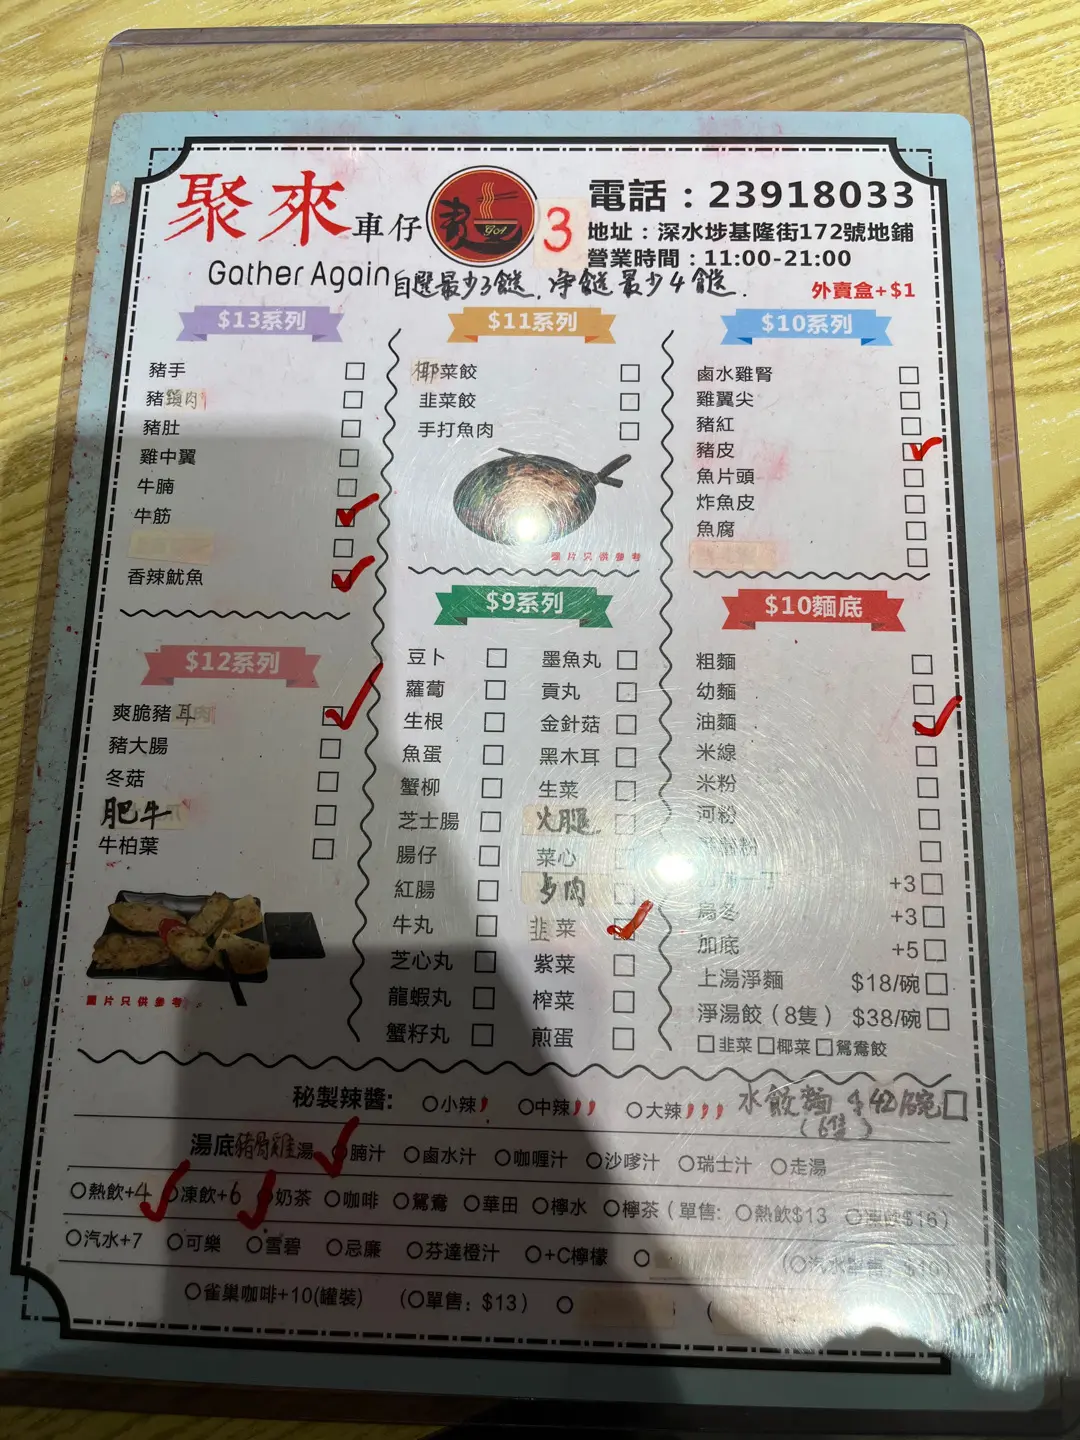 聚來車仔
Gather Again
3
電話：23918033
地址：深水埗基隆街172號地鋪
營業時間：11:00-21:00
自選最少3餸，净餸最少4餸.
外賣盒+$1
$13系列
豬手
豬頸肉
豬肚
雞中翼
牛腩
牛筋
香辣魷魚
$12系列
爽脆豬耳肉
豬大腸
冬菇
肥牛
牛柏葉
圖片只供參考
$11系列
椰菜餃
韭菜餃
手打魚肉
圖片只供參考
$9系列
豆卜
蘿蔔
生根
魚蛋
蟹柳
芝士腸
腸仔
紅腸
牛丸
芝心丸
龍蝦丸
蟹籽丸
墨魚丸
貢丸
金針菇
黑木耳
生菜
火腿
菜心
肉
韭菜
紫菜
榨菜
煎蛋
$10系列
鹵水雞腎
雞翼尖
豬紅
豬皮
魚片頭
炸魚皮
魚腐
$10麵底
粗麵
幼麵
油麵
米線
米粉
河粉
粉
丁 +3
烏冬 +3
加底 +5
上湯淨麵 $18/碗
淨湯餃（8隻） $38/碗
韭菜 椰菜 鴛鴦餃
秘製辣醬: 小辣 中辣 大辣 水餃麵 $42/碗
（6隻）
湯底 豬骨雞湯 腩汁 鹵水汁 咖喱汁 沙嗲汁 瑞士汁 走湯
熱飲+4 凍飲+6 奶茶 咖啡 鴛鴦 華田 檸水 檸茶（單售: 熱飲$13 凍飲$16）
汽水+7 可樂 雪碧 忌廉 芬達橙汁 +C檸檬 （汽水單售: $10）
雀巢咖啡+10(罐裝) （單售：$13）